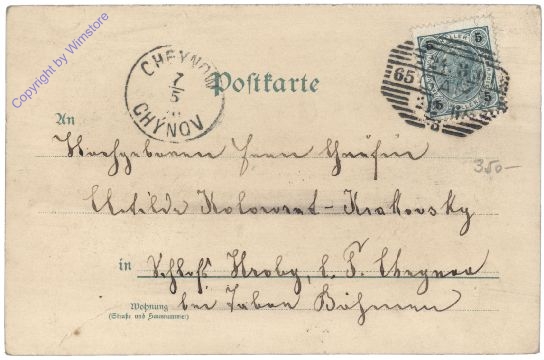 Copyright by Wimstore
CHEYNOW
7/5
CHÝNOV
Postkarte
5 5
65
An
Hochgeboren Frau Gräfin
Clotilde Kolowrat-Krakovsky
350—
in Schloß Hroby, l. P. Cheynov
Wohnung
(Straße und Hausnummer)
bei Tabor Böhmen